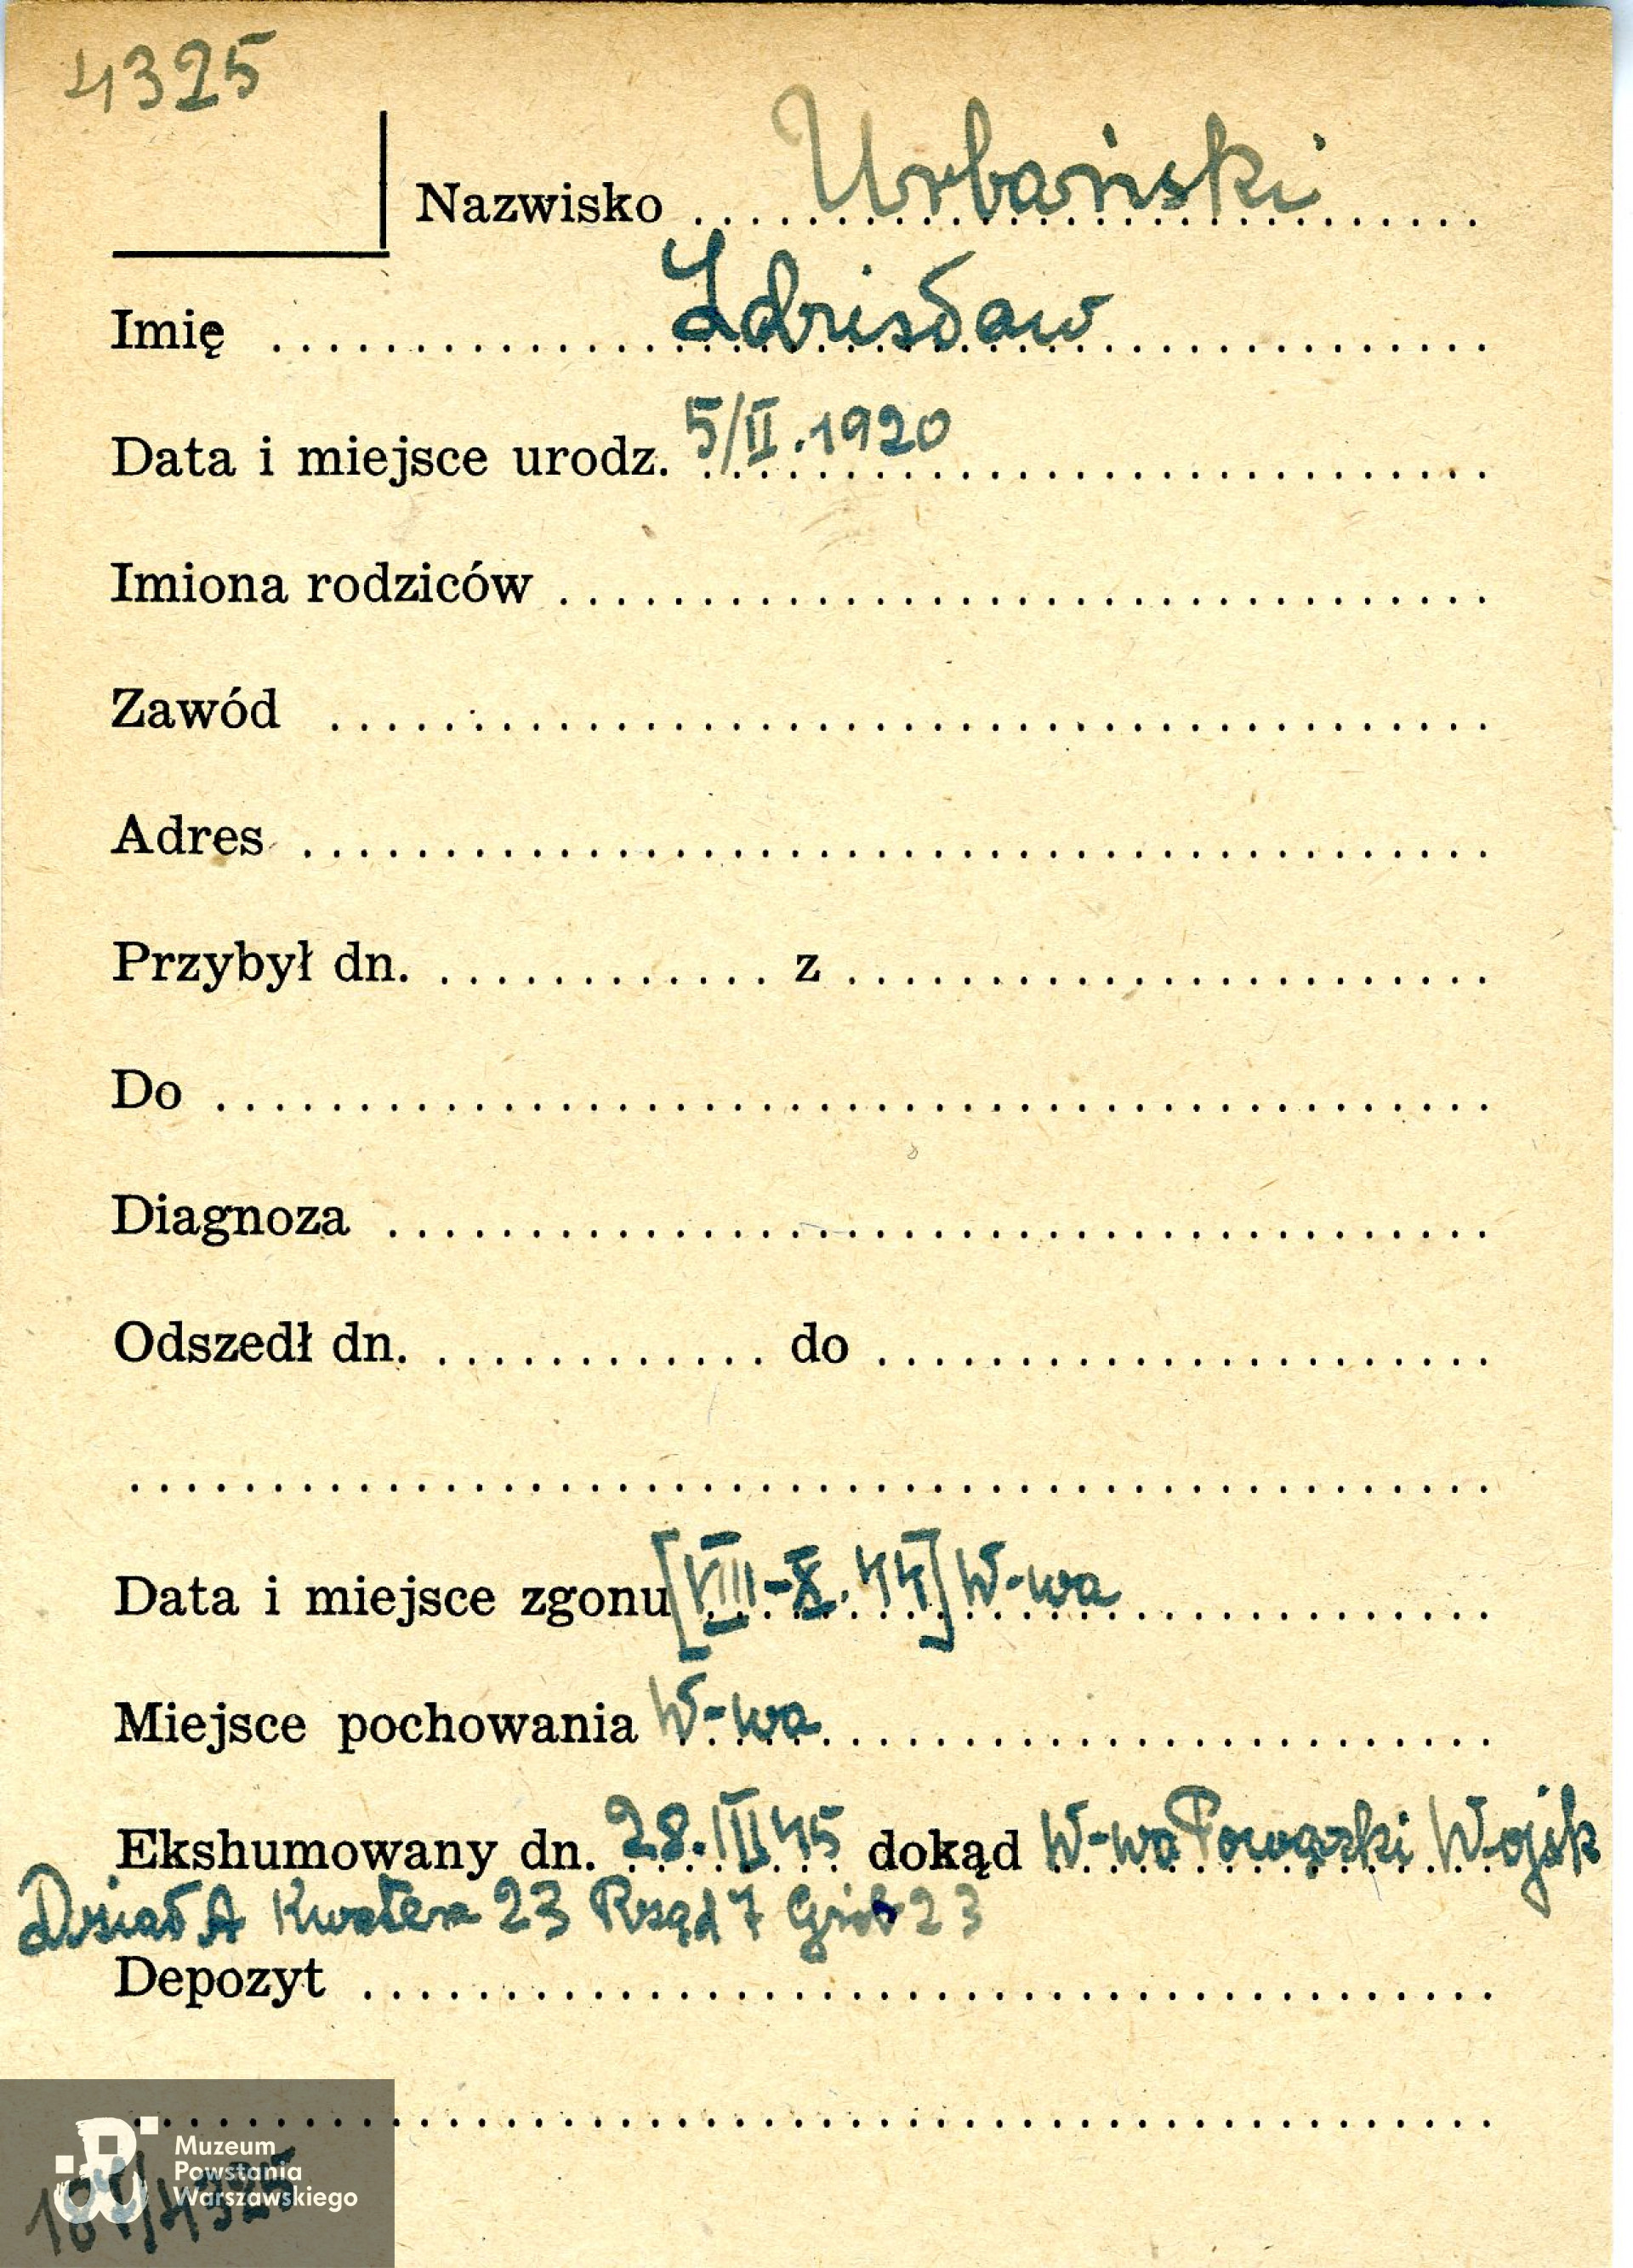 4325
Nazwisko Urbański
Imię Zdzisław
Data i miejsce urodz. 5/II.1920
Imiona rodziców
Zawód
Adres
Przybył dn. z
Do
Diagnoza
Odszedł dn. do
Data i miejsce zgonu [VIII-X.44] W-wa
Miejsce pochowania W-wa
Ekshumowany dn. 28.III 45 dokąd W-wa Powązki Wojsk
Dział A Kwatera 23 Rząd 7 Grób 23
Depozyt
Muzeum
Powstania
Warszawskiego